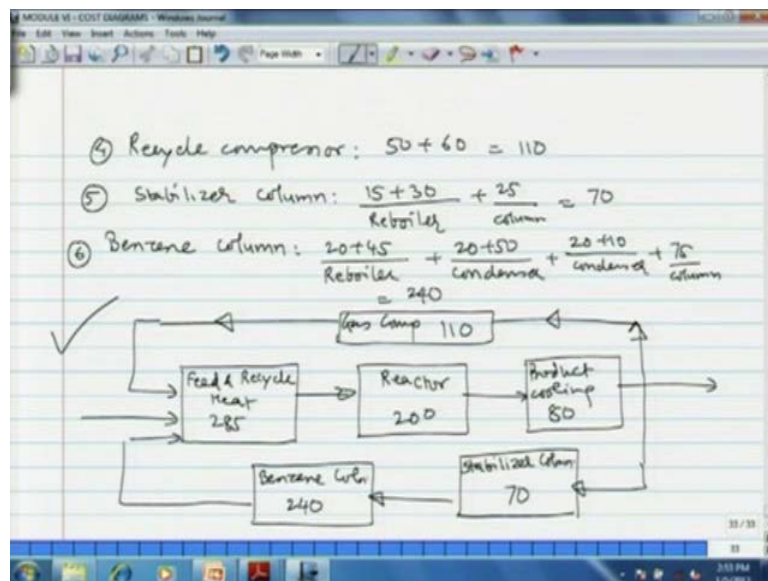 MODULE VI - COST DIAGRAMS - Windows Journal
File Edit View Insert Actions Tools Help
Page Width
④ Recycle compressor: 50 + 60 = 110
⑤ Stabilizer column: 15 + 30 / Reboiler + 25 / column = 70
⑥ Benzene column: 20+45 / Reboiler + 20+50 / condenser + 20+10 / condenser + 75 / column
= 240
Gas Comp 110
Feed & Recycle
Heat
285
Reactor
200
Product
cooling
80
Benzene Coln
240
Stabilizer Colum
70
33 / 33
33
2:53 PM